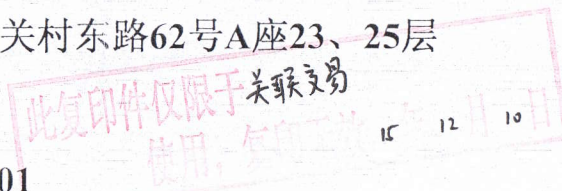 关村东路62号A座23、25层
此复印件仅限于关联交易
使用，复印无效 15 12 月 10 日
01